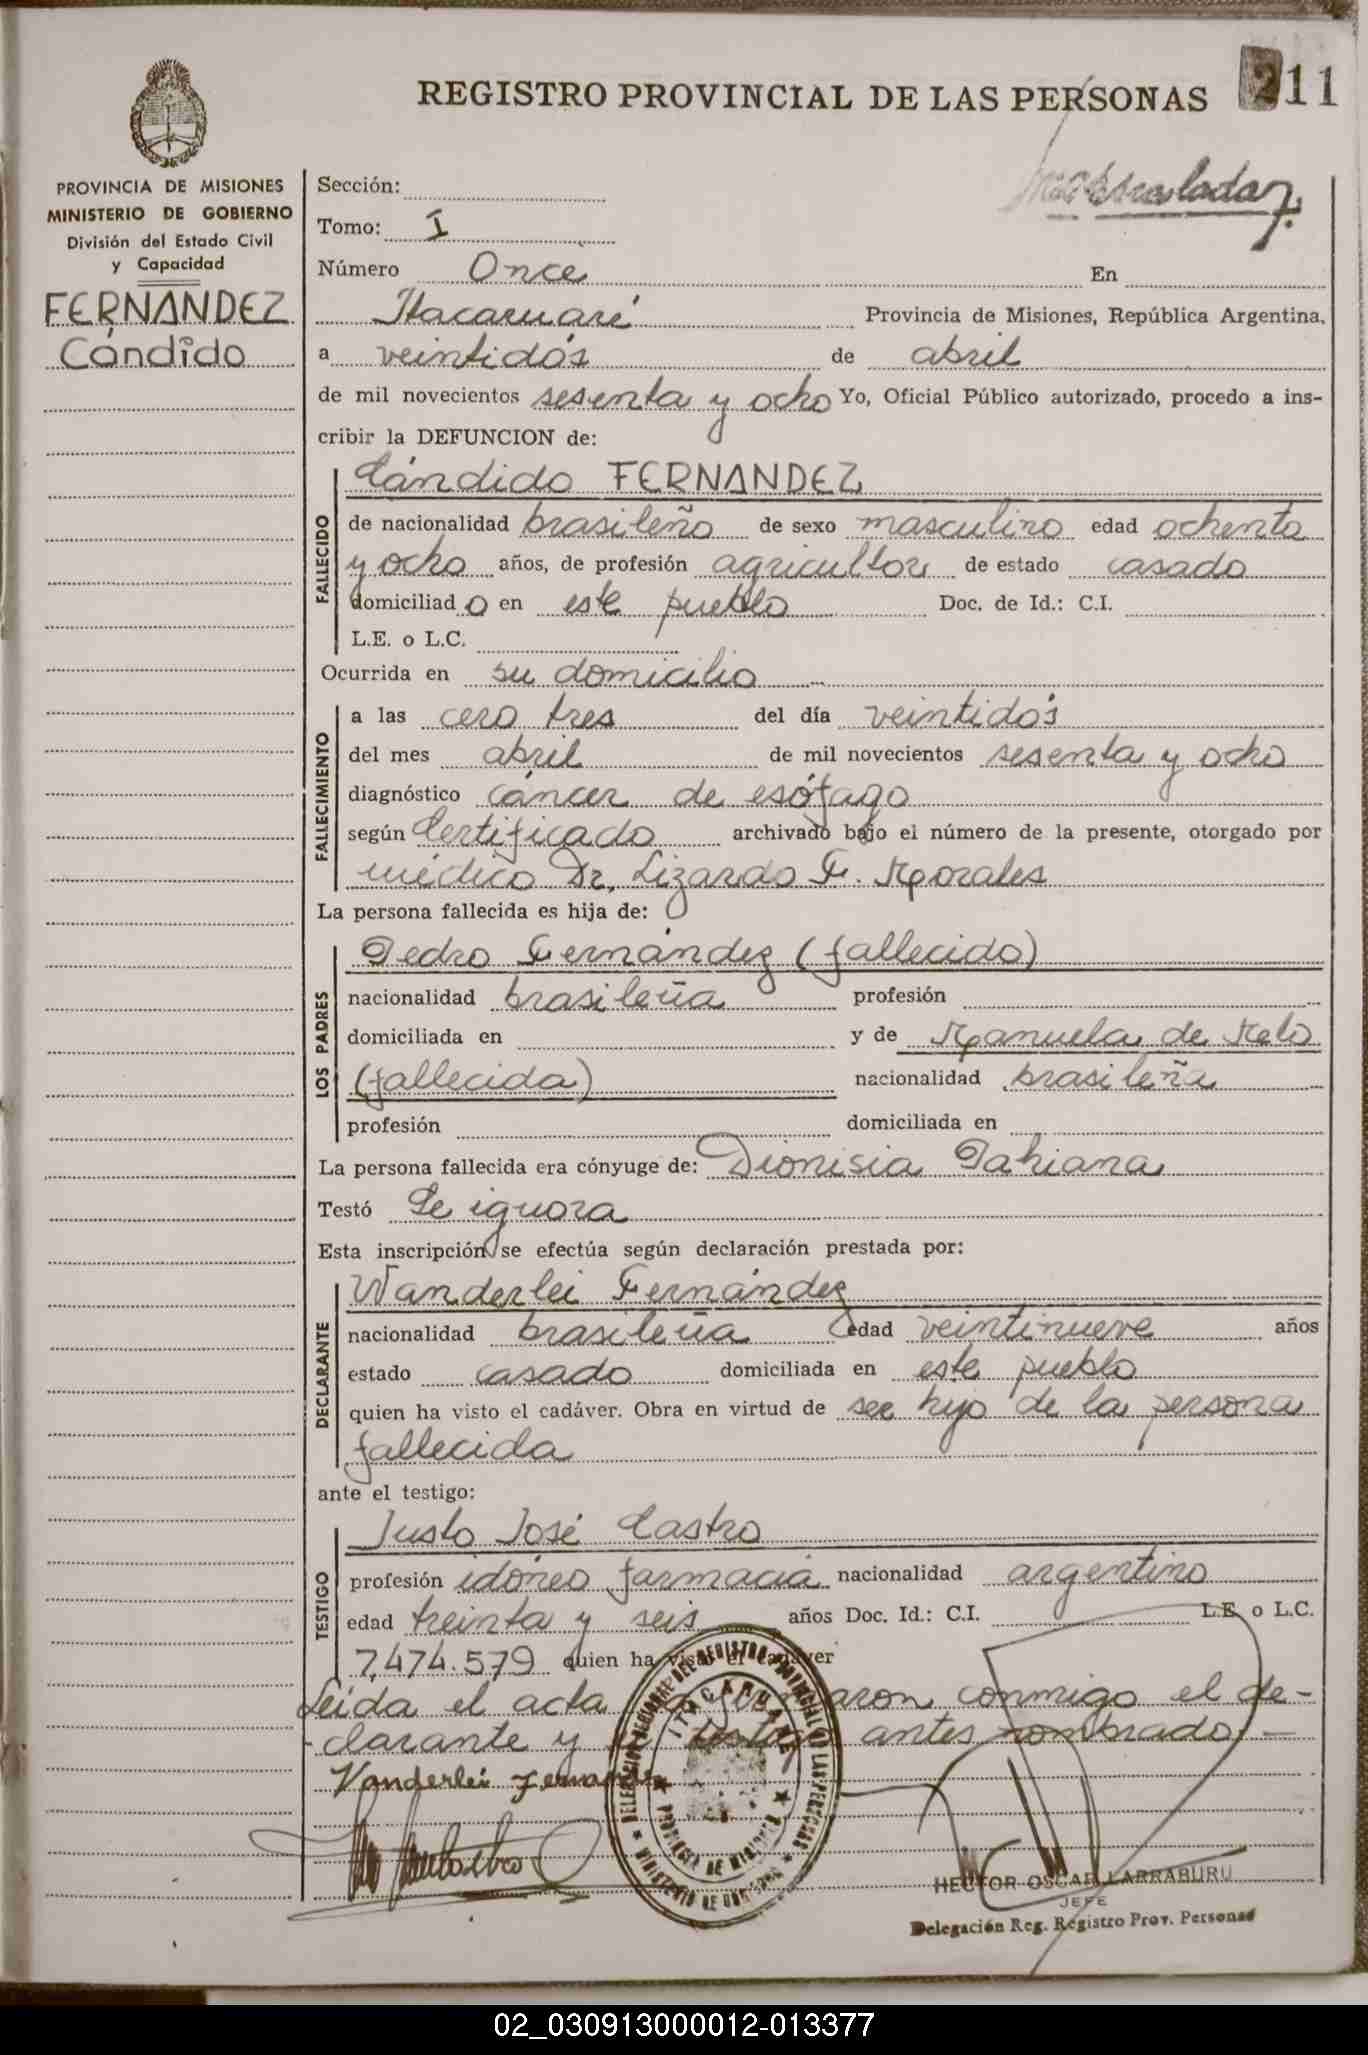 REGISTRO PROVINCIAL DE LAS PERSONAS
211
PROVINCIA DE MISIONES
MINISTERIO DE GOBIERNO
División del Estado Civil
y Capacidad
FERNANDEZ
Cándido
Sección:
Tomo: I
Número Once En
Itacaruaré Provincia de Misiones, República Argentina,
a veintidós de abril
de mil novecientos sesenta y ocho Yo, Oficial Público autorizado, procedo a ins-
cribir la DEFUNCION de:
FALLECIDO
Cándido FERNANDEZ
de nacionalidad brasileño de sexo masculino edad ochenta
y ocho años, de profesión agricultor de estado casado
domiciliado en este pueblo Doc. de Id.: C.I.
L.E. o L.C.
Ocurrida en su domicilio
FALLECIMIENTO
a las cero tres del día veintidós
del mes abril de mil novecientos sesenta y ocho
diagnóstico cáncer de esófago
según Certificado archivado bajo el número de la presente, otorgado por
médico Dr. Lizardo F. Morales
La persona fallecida es hija de:
LOS PADRES
Pedro Fernández (fallecido)
nacionalidad brasileña profesión
domiciliada en y de Manuela de Melo
(fallecida) nacionalidad brasileña
profesión domiciliada en
La persona fallecida era cónyuge de: Dionisia Tahiana
Testó Se ignora
Esta inscripción se efectúa según declaración prestada por:
DECLARANTE
Wanderlei Fernández
nacionalidad brasileña edad veintinueve años
estado casado domiciliada en este pueblo
quien ha visto el cadáver. Obra en virtud de ser hijo de la persona
fallecida
ante el testigo:
TESTIGO
Justo José Castro
profesión idóneo farmacia nacionalidad argentino
edad treinta y seis años Doc. Id.: C.I. L.E. o L.C.
7.474.579 quien ha visto el cadáver
Leída el acta conmigo el de-
clarante y el testigo antes nombrado.—
Vanderlei Fernandes
DELEGACION REGIONAL DEL REGISTRO PROVINCIAL DE LAS PERSONAS
ITACARUARE
PROVINCIA DE MISIONES
MINISTERIO DE GOBIERNO
HECTOR OSCAR LARRABURU
JEFE
Delegación Reg. Registro Prov. Personas
02_030913000012-013377